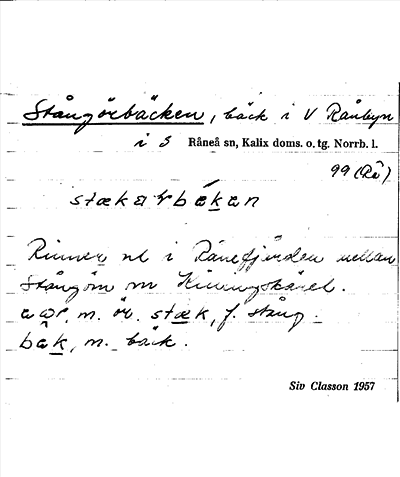 Stångörbäcken, bäck i V Rånbyn
i S Råneå sn, Kalix doms. o. tg. Norrb. l.
99 (Rå)
Rinner ut i Rånefjärden mellan
Stångörn
m. ör. stæk, f. stång.
bäk, m. bäck.
Siv Classon 1957